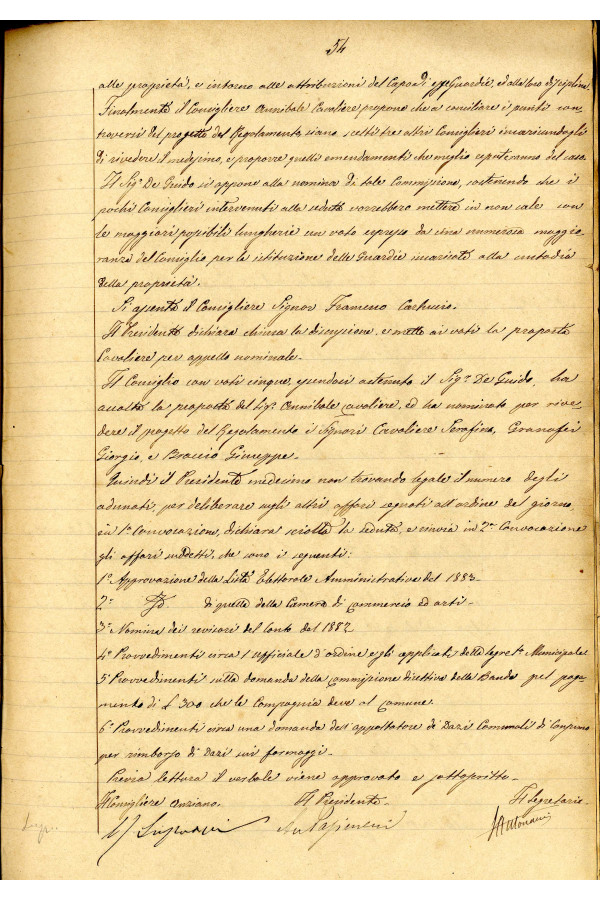 54
alle proprietà, e intorno alle attribuzioni del Capo di esse Guardie, ed alla loro disciplina.
Finalmente il Consigliere Annibale Cavaliere propone che a conciliare i punti con-
troversi del progetto del Regolamento siano scelti tre altri Consiglieri incaricandogli
di rivedere il medesimo, e proporre quelli emendamenti che meglio reputeranno del caso.
Il Sigr. De Guido si oppone alla nomina di tale Commissione, sostenendo che i
pochi Consiglieri intervenuti alla seduta vorrebbero mettere in non cale con
le maggiori possibili lungherie un voto espresso da una numerosa maggio-
ranza del Consiglio per la istituzione delle Guardie incaricate alla custodia
della proprietà.
Si assenta il Consigliere Signor Francesco
Il Presidente dichiara chiusa la discussione, e mette ai voti la proposta
Cavaliere per appello nominale.
Il Consiglio con voti cinque, essendosi astenuto il Sigr. De Guido, ha
accolto la proposta del Sigr. Annibale Cavaliere, ed ha nominato per rive-
dere il progetto del Regolamento i Signori Cavaliere Serafino, Granafei
Giorgio, e Braccio Giuseppe.
Quindi il Presidente medesimo non trovando legale il numero degli
adunati, per deliberare sugli altri affari segnati all'ordine del giorno,
in 1a Convocazione, dichiara sciolta la seduta, e rinvia in 2a Convocazione
gli affari suddetti, che sono i seguenti:
1° Approvazione della Lista Elettorale Amministrativa del 1883.
2° Id. di quella della Camera di Commercio ed arti.
3° Nomina dei revisori del Conto del 1882
4° Provvedimenti circa l'ufficiale d'ordine e gli applicati della Segreta. Municipale
5° Provvedimenti sulla domanda della Commissione direttiva della Banda pel paga-
mento di £ 300 che la Compagnia deve al Comune.
6° Provvedimenti circa una domanda dell'appaltatore di Dazi Comunali di Consumo
per rimborso di Dazi sui formaggi.
Previa lettura il verbale viene approvato e sottoscritto.
Il Consigliere Anziano. Il Presidente. Il Segretario.